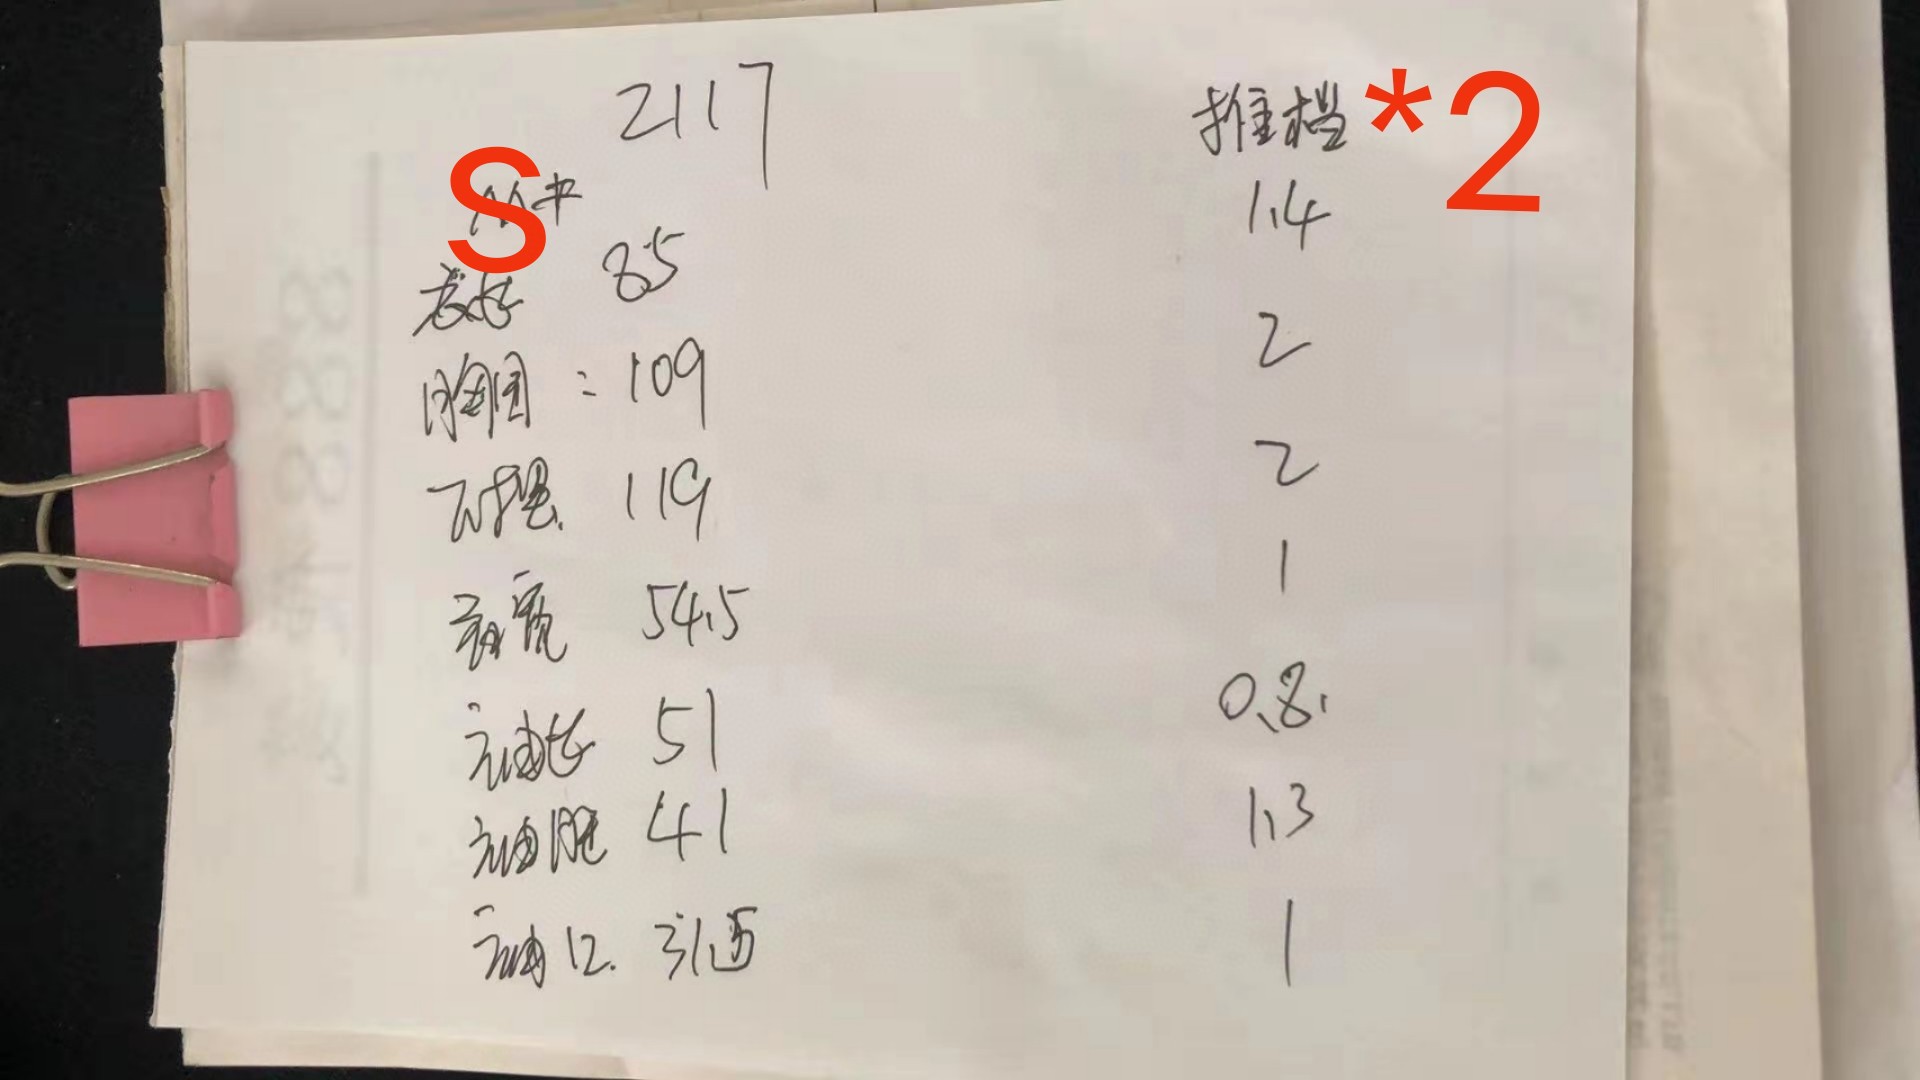 2117 推档 *2
S
衣长 85 1.4
胸围: 109 2
下摆. 119 2
肩宽 54.5 1
袖长 51 0.8.
袖肥 41 1.3
袖口. 31.5 1